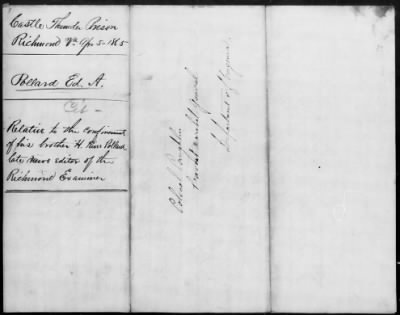 Castle Thunder Prison
Richmond Va Apr 5-1865
Pollard Ed. A.
Cit-
Relative to the confinement
of his brother H. Rives Pollard
late news editor of the
Richmond Examiner
Provost Marshal General
Department of Virginia